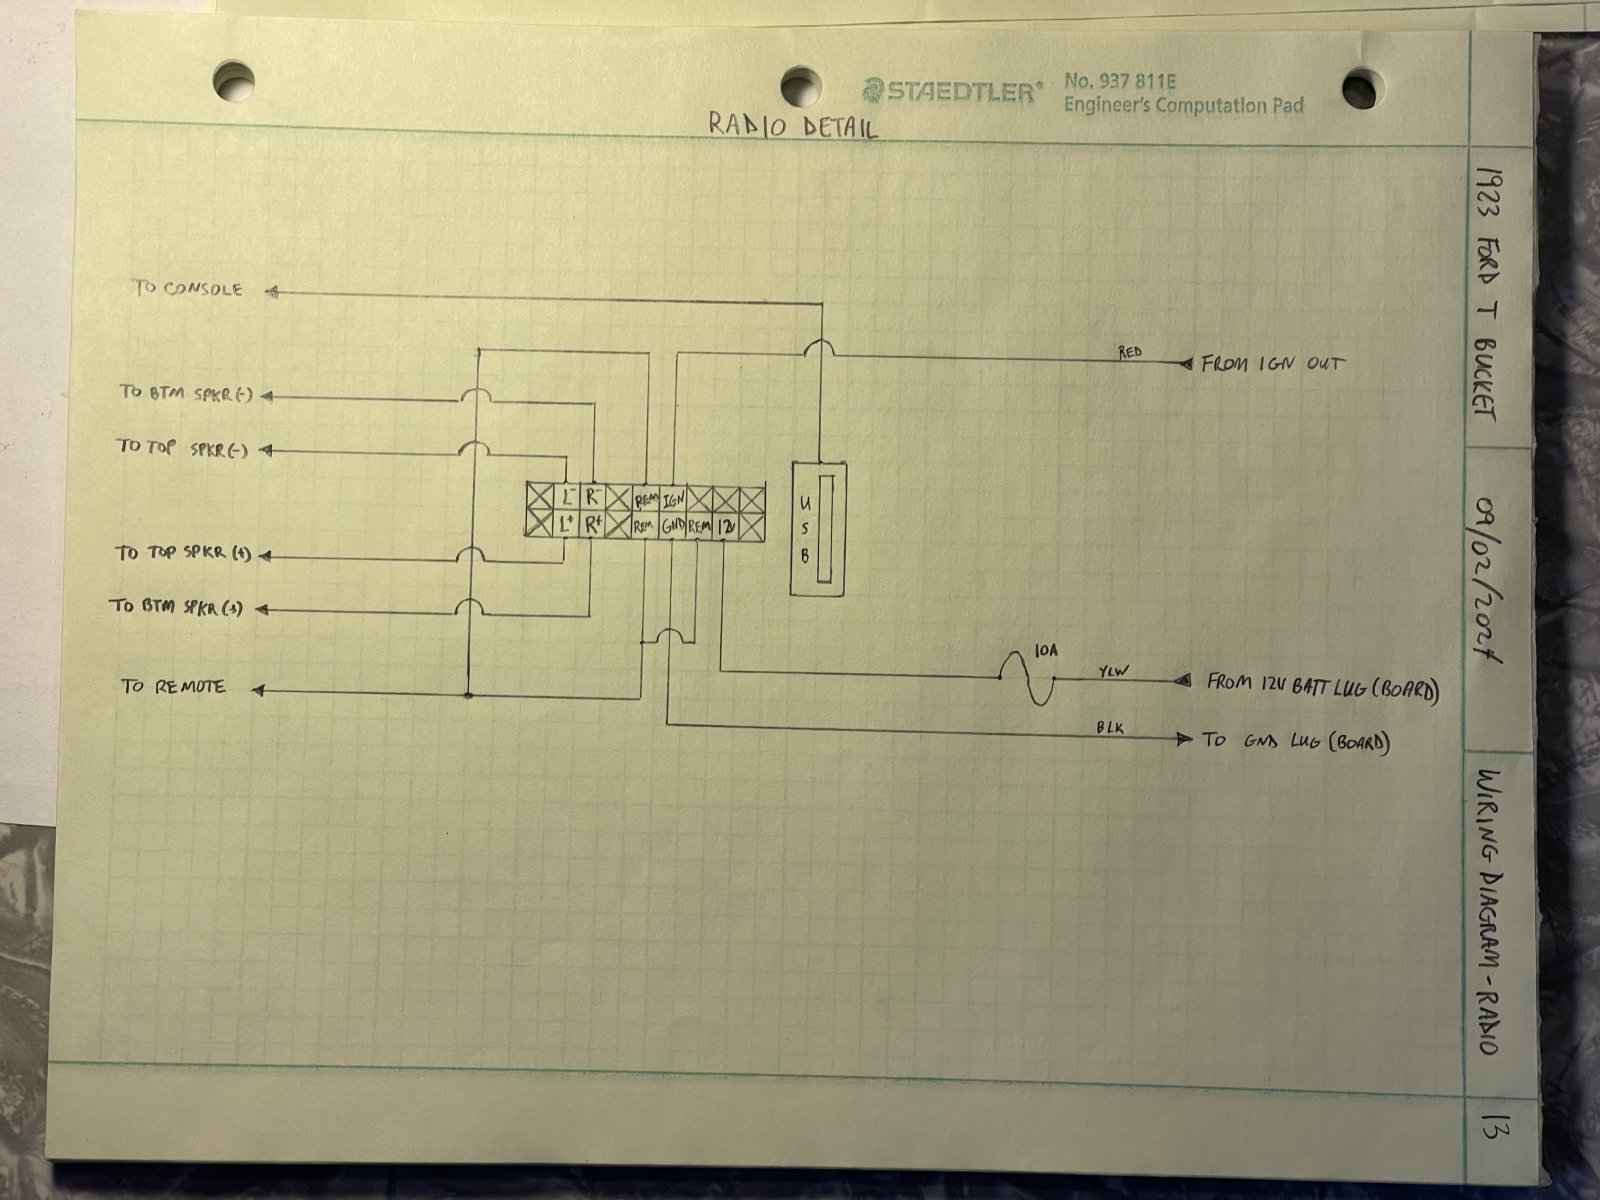 STAEDTLER®
No. 937 811E
Engineer's Computation Pad
RADIO DETAIL
TO CONSOLE
RED
FROM IGN OUT
TO BTM SPKR(-)
TO TOP SPKR(-)
L- R- REM IGN
L+ R+ REM GND REM 12V
USB
TO TOP SPKR (+)
TO BTM SPKR (+)
10A
TO REMOTE
YLW
FROM 12V BATT LUG (BOARD)
BLK
TO GND LUG (BOARD)
1923 FORD T BUCKET
09/02/2024
WIRING DIAGRAM - RADIO
13